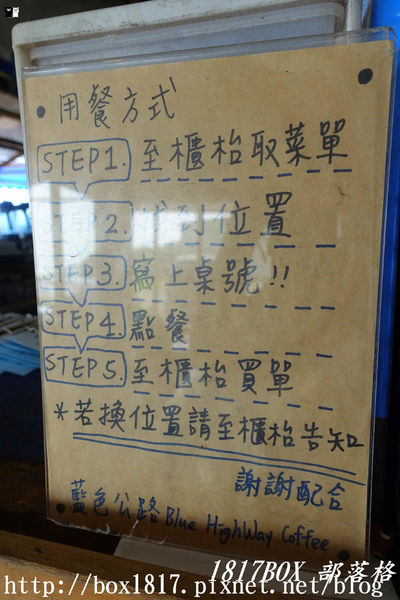 用餐方式
STEP1. 至櫃枱取菜單
STEP2. 找到位置
STEP3. 寫上桌號!!
STEP4. 點餐
STEP5. 至櫃枱買單
*若換位置請至櫃枱告知
謝謝配合
藍色公路 Blue HighWay Coffee
1817BOX 部落格
http://box1817.pixnet.net/blog